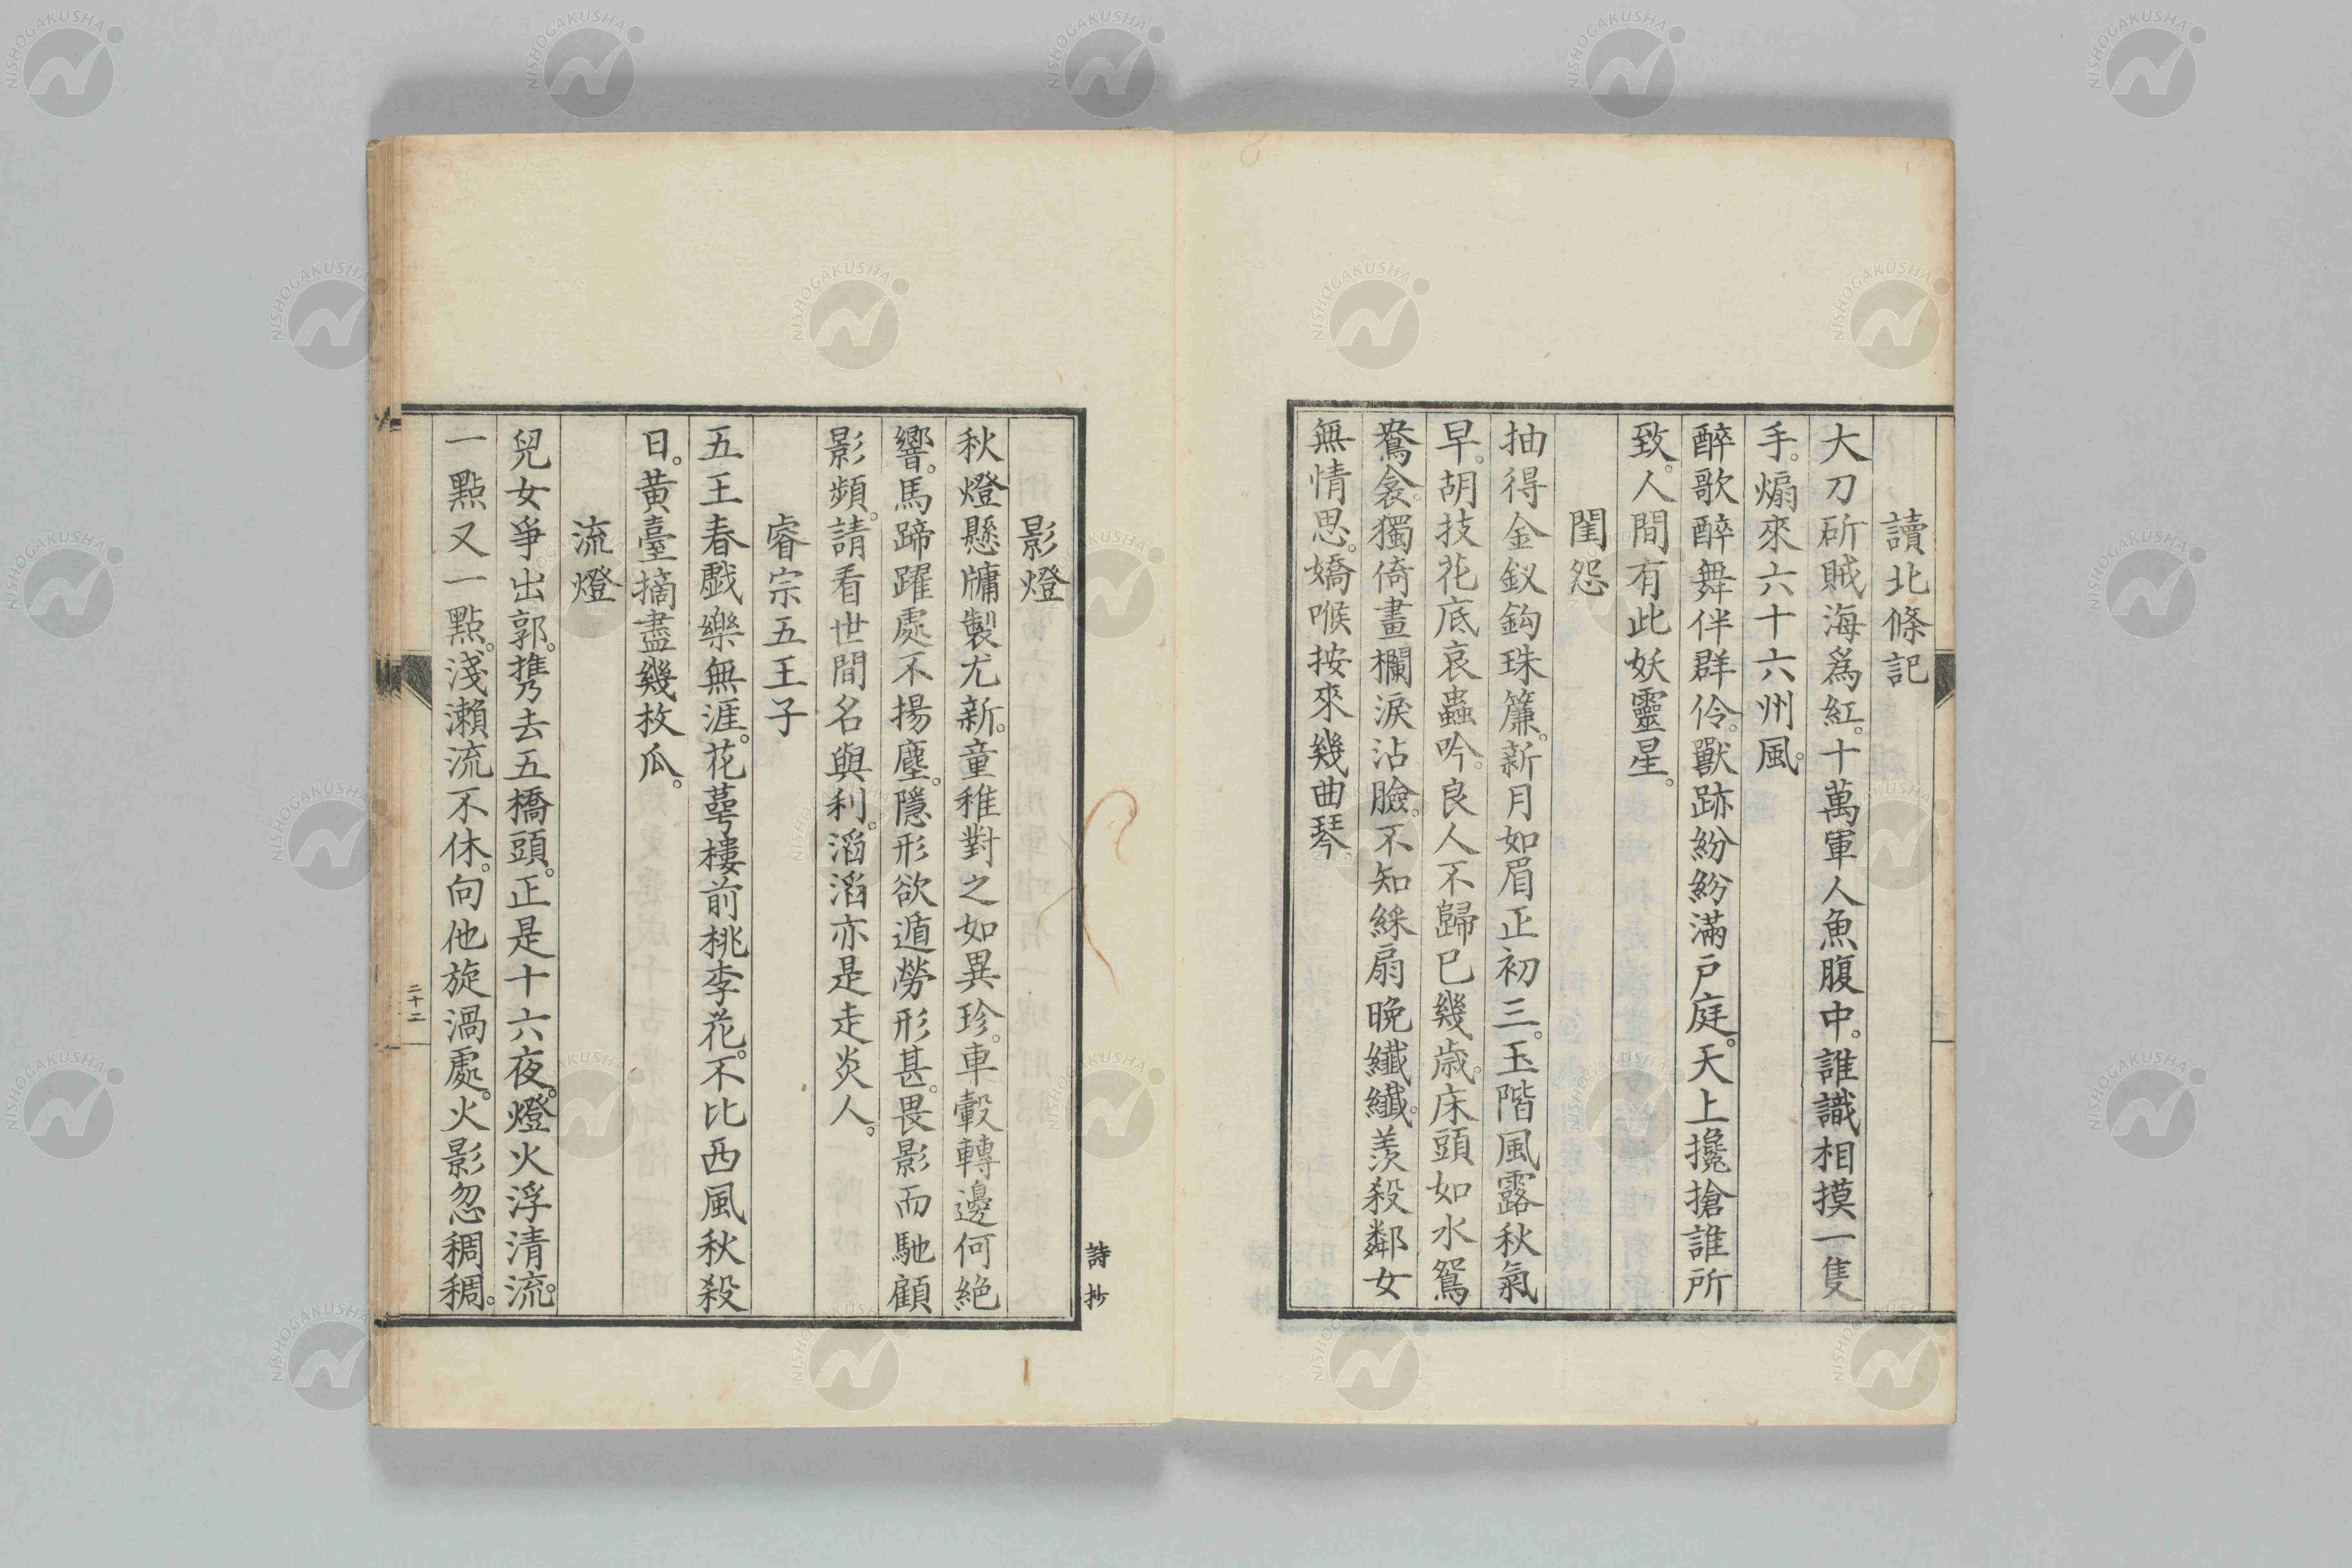 讀北條記
大刀斫賊海爲紅。十萬軍人魚腹中。誰識相摸一隻
手。煽來六十六州風。
醉歌醉舞伴群伶。獸跡紛紛滿戸庭。天上攙搶誰所
致。人間有此妖靈星。
閨怨
抽得金釵鈎珠簾。新月如眉正初三。玉階風露秋氣
早。胡技花底哀蟲吟。良人不歸已幾歳。床頭如水鴛
鴦衾。獨倚畫欄淚沾臉。不知綵扇晩纖纖。羨殺鄰女
無情思。嬌喉按來幾曲琴。
影燈
秋燈懸牗製尤新。童稚對之如異珍。車轂轉邊何絶
響。馬蹄躍處不揚塵。隱形欲遁勞形甚。畏影而馳顧
影頻。請看世間名與利。滔滔亦是走炎人。
睿宗五王子
五王春戲樂無涯。花萼樓前桃李花。不比西風秋殺
日。黄臺摘盡幾枚瓜。
流燈
兒女爭出郭。携去五橋頭。正是十六夜。燈火浮清流。
一點又一點。淺瀬流不休。向他旋渦處。火影忽稠稠。
詩抄
二十二
NISHOGAKUSHA